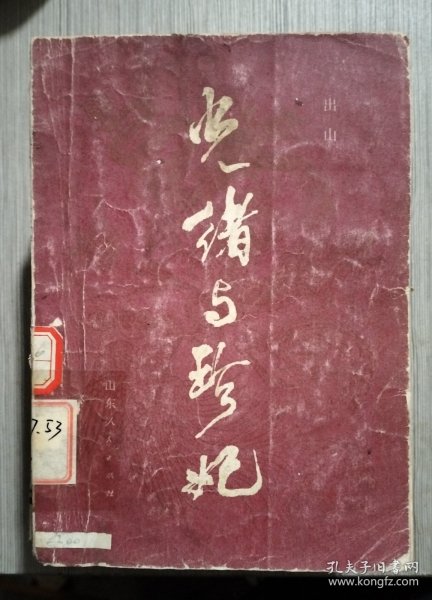 出山
光绪与珍妃
山东人民出版社
7.53
孔夫子旧书网
www.kongfz.com